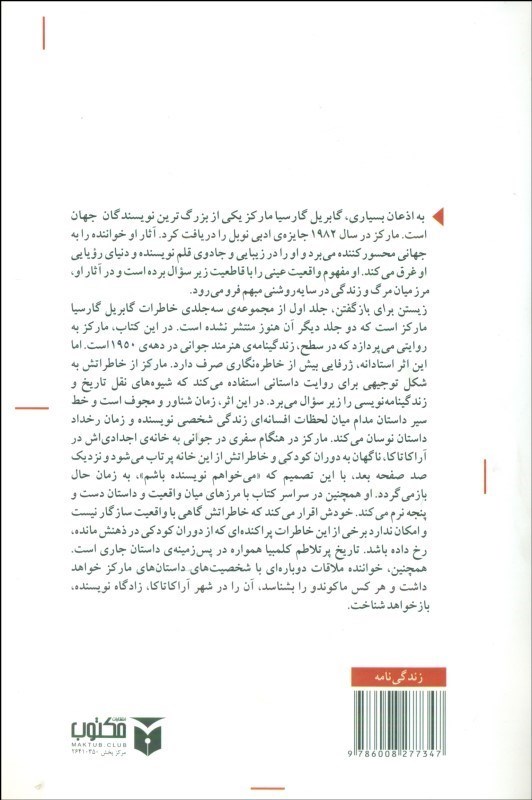 به اذعان بسیاری، گابریل گارسیا مارکز یکی از بزرگ‌ترین نویسندگان جهان
است. مارکز در سال ۱۹۸۲ جایزه‌ی ادبی نوبل را دریافت کرد. آثار او خواننده را به
جهانی محسورکننده می‌برد و او را در زیبایی و جادوی قلم نویسنده و دنیای رؤیایی
او غرق می‌کند. او مفهوم واقعیت عینی را با قاطعیت زیر سؤال برده است و در آثار او،
مرز میان مرگ و زندگی در سایه‌روشنی مبهم فرو می‌رود.
زیستن برای بازگفتن، جلد اول از مجموعه‌ی سه‌جلدی خاطرات گابریل گارسیا
مارکز است که دو جلد دیگر آن هنوز منتشر نشده است. در این کتاب، مارکز به
روایتی می‌پردازد که در سطح، زندگینامه‌ی هنرمند جوانی در دهه‌ی ۱۹۵۰ است. اما
این اثر استادانه، ژرفایی بیش از خاطره‌نگاری صرف دارد. مارکز از خاطراتش به
شکل توجیهی برای روایت داستانی استفاده می‌کند که شیوه‌های نقل تاریخ و
زندگینامه‌نویسی را زیر سؤال می‌برد. در این اثر، زمان شناور و مجوف است و خط
سیر داستان مدام میان لحظات افسانه‌ای زندگی شخصی نویسنده و زمان رخداد
داستان نوسان می‌کند. مارکز در هنگام سفری در جوانی به خانه‌ی اجدادی‌اش در
آراکاتاکا، ناگهان به دوران کودکی و خاطراتش از این خانه پرتاب می‌شود و نزدیک
صد صفحه بعد، با این تصمیم که «می‌خواهم نویسنده باشم»، به زمان حال
بازمی‌گردد. او همچنین در سراسر کتاب با مرزهای میان واقعیت و داستان دست و
پنجه نرم می‌کند. خودش اقرار می‌کند که خاطراتش گاهی با واقعیت سازگار نیست
و امکان ندارد برخی از این خاطرات پراکنده‌ای که از دوران کودکی در ذهنش مانده،
رخ داده باشد. تاریخ پرتلاطم کلمبیا همواره در پس‌زمینه‌ی داستان جاری است.
همچنین، خواننده ملاقات دوباره‌ای با شخصیت‌های داستان‌های مارکز خواهد
داشت و هر کس ماکوندو را بشناسد، آن را در شهر آراکاتاکا، زادگاه نویسنده،
بازخواهد شناخت.
زندگی‌نامه
9 786008 277347
انتشارات
مکتوب
MAKTUB.CLUB
مرکز پخش ۳۵۰-۲۶۴۱